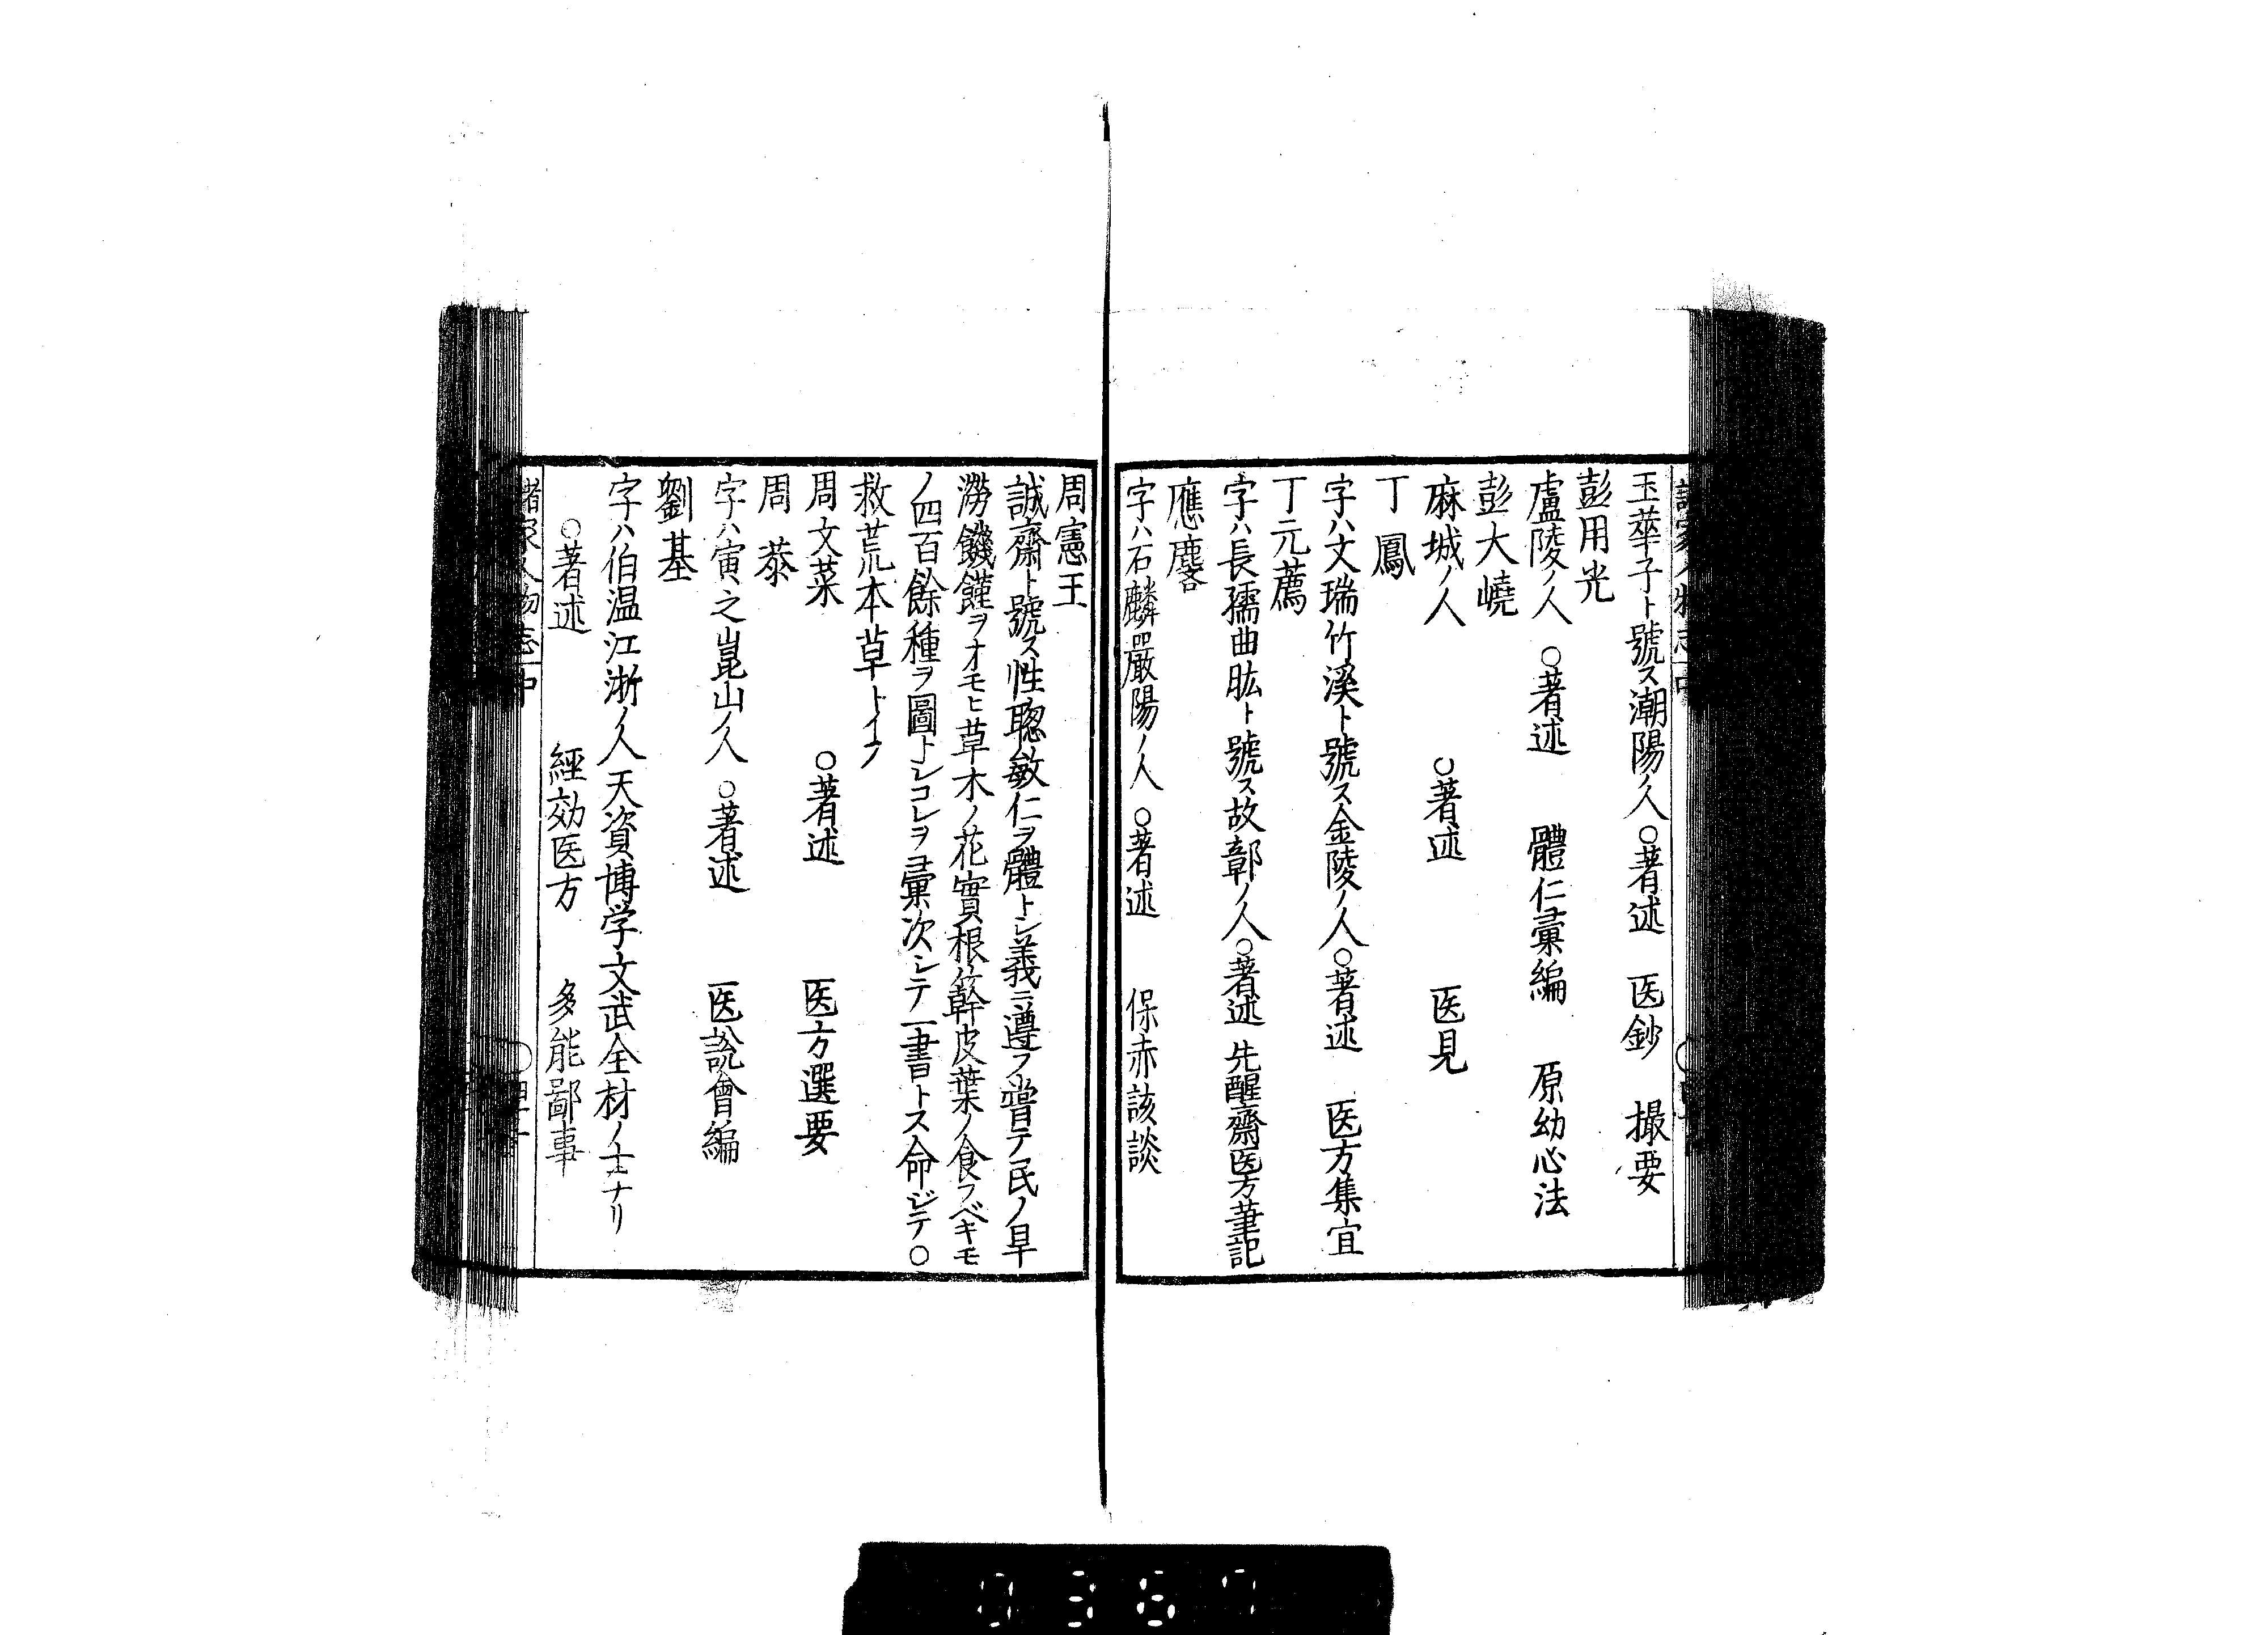 玉華子ト號ス潮陽ノ人○著述　医鈔　撮要
彭用光
盧陵ノ人　○著述　體仁彙編　原幼心法
彭大嶢
麻城ノ人　○著述　医見
丁鳳
字ハ文瑞竹溪ト號ス金陵ノ人○著述　医方集宜
丁元薦
字ハ長孺曲肱ト號ス故鄣ノ人○著述　先醒齋医方筆記
應麐
字ハ石麟嚴陽ノ人　○著述　保赤該談
周憲王
誠齋ト號ス性聰敏仁ヲ體トシ義ニ遵フ嘗テ民ノ旱
澇饑饉ヲオモヒ草木ノ花實根笴幹皮葉ノ食フベキモ
ノ四百餘種ヲ圖トシコレヲ彙次シテ一書トス命ジテ○
救荒本草トイフ
周文菜　○著述　医方選要
周恭
字ハ寅之崑山ノ人　○著述　医說會編
劉基
字ハ伯温江浙ノ人天資博学文武全材ノ士ナリ
○著述　經効医方　多能鄙事
諸家人物志中